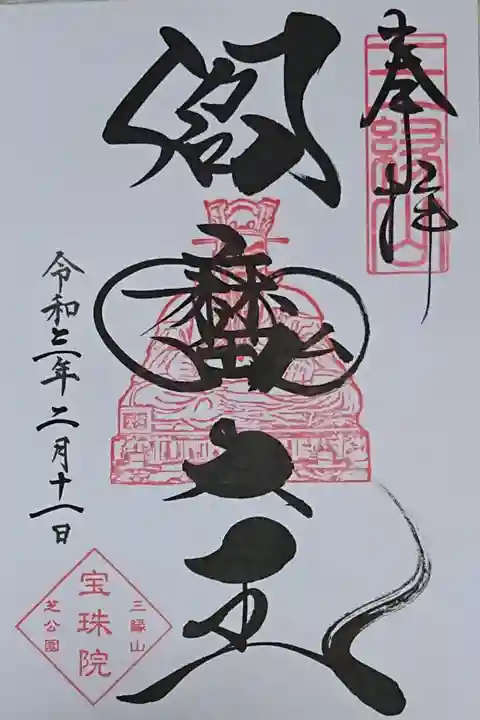 奉拝
三縁山
閻魔大王
令和二年二月十一日
三縁山
宝珠院
芝公園